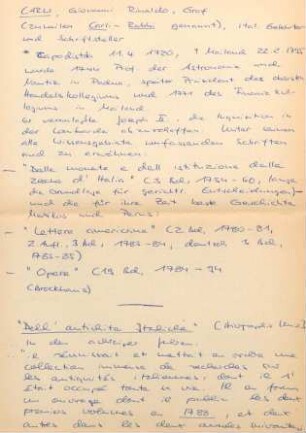 CARLI, Giovanni Rinaldo, Graf
(zuweilen Carli-Rubbi genannt), ital. Gelehrter
und Schriftsteller
* Capodistria 11.4.1720, † Mailand 22.2.1795
wurde 1744 Prof. der Astronomie und
Nautik in Padua, später Präsident des obersten
Handelskollegiums und 1771 des Finanzkol-
legiums in Mailand.
Er veranlaßte Joseph II. die Inquisition in
der Lombardei abzuschaffen. Unter seinen
alle Wissensgebiete umfassenden Schriften
sind zu erwähnen:
— "Delle monete e dell' istituzione delle
zecche d' Italia" (3 Bd., 1754-60, lange
die Grundlage für gerichtl. Entscheidungen)
und die für ihre Zeit beste Geschichte
Mexikos und Perus:
— "Lettere americane" (2 Bd., 1780-81,
2. Aufl., 3 Bd., 1783-84, deutsch 3 Bd.,
1785-)
— "Opere" (19 Bd., 1784-94)
(Brockhaus)
"Dell' antichità Italiche" (
In den achtziger Jahren:
"il réunissait et mettait en ordre une
collection immense de recherches sur
les antiquités italiennes, dont il s'
était occupé toute sa vie. Il en forma
un ouvrage dont il publia les deux
premiers volumes en 1788, et deux
autres dans les deux années suivantes